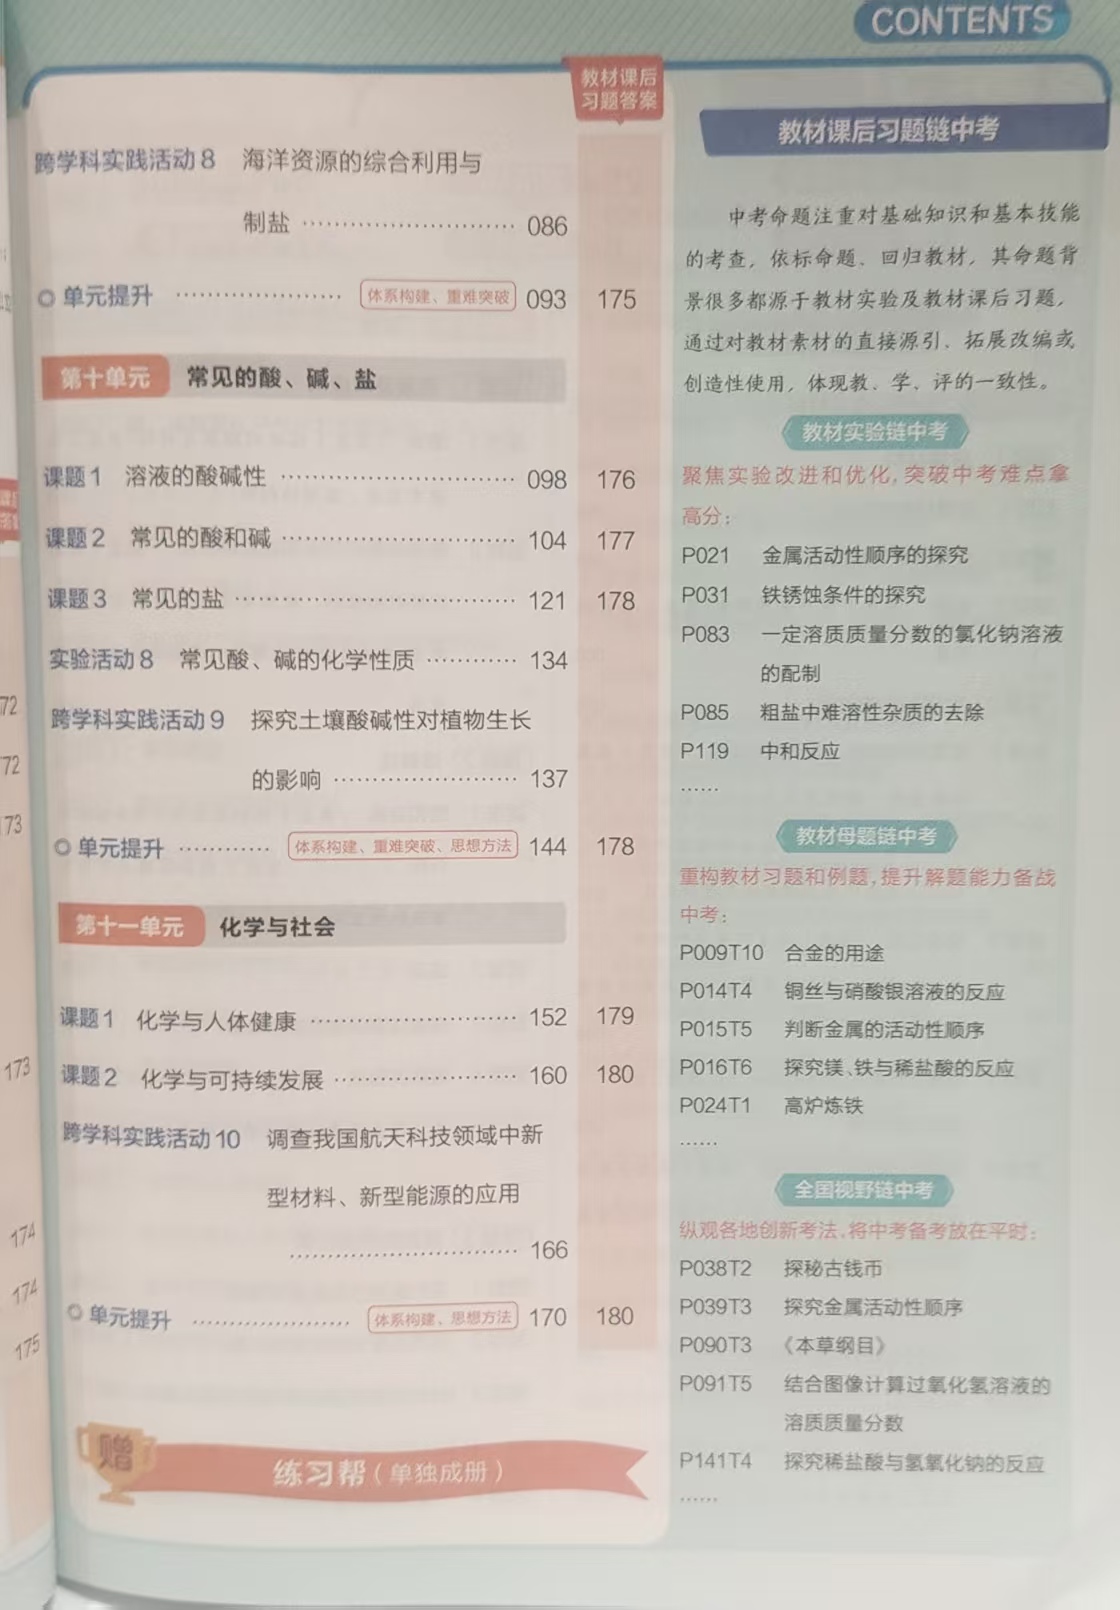 CONTENTS
教材课后
习题答案
跨学科实践活动8 海洋资源的综合利用与
制盐 …………………… 086
单元提升 ………………… 体系构建、重难突破 093 175
第十单元 常见的酸、碱、盐
课题1 溶液的酸碱性 …………………… 098 176
课题2 常见的酸和碱 …………………… 104 177
课题3 常见的盐 ………………………… 121 178
实验活动8 常见酸、碱的化学性质 ………… 134
跨学科实践活动9 探究土壤酸碱性对植物生长
的影响 ………………… 137
单元提升 ………… 体系构建、重难突破、思想方法 144 178
第十一单元 化学与社会
课题1 化学与人体健康 ………………… 152 179
课题2 化学与可持续发展 ……………… 160 180
跨学科实践活动10 调查我国航天科技领域中新
型材料、新型能源的应用
…………………… 166
单元提升 ……………… 体系构建、思想方法 170 180
赠
练习帮（单独成册）
教材课后习题链中考
中考命题注重对基础知识和基本技能
的考查，依标命题、回归教材，其命题背
景很多都源于教材实验及教材课后习题，
通过对教材素材的直接源引、拓展改编或
创造性使用，体现教、学、评的一致性。
教材实验链中考
聚焦实验改进和优化，突破中考难点拿
高分：
P021 金属活动性顺序的探究
P031 铁锈蚀条件的探究
P083 一定溶质质量分数的氯化钠溶液
的配制
P085 粗盐中难溶性杂质的去除
P119 中和反应
……
教材母题链中考
重构教材习题和例题，提升解题能力备战
中考：
P009T10 合金的用途
P014T4 铜丝与硝酸银溶液的反应
P015T5 判断金属的活动性顺序
P016T6 探究镁、铁与稀盐酸的反应
P024T1 高炉炼铁
……
全国视野链中考
纵观各地创新考法，将中考备考放在平时：
P038T2 探秘古钱币
P039T3 探究金属活动性顺序
P090T3 《本草纲目》
P091T5 结合图像计算过氧化氢溶液的
溶质质量分数
P141T4 探究稀盐酸与氢氧化钠的反应
……
72
72
173
173
174
174
175